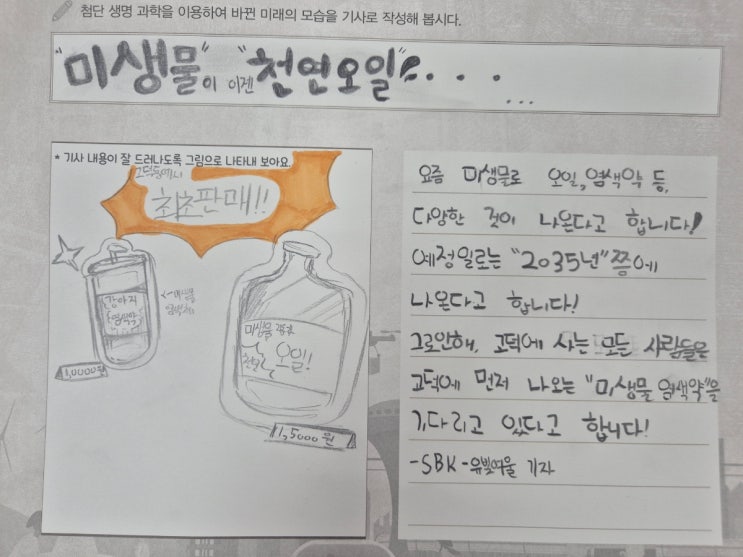 첨단 생명 과학을 이용하여 바뀐 미래의 모습을 기사로 작성해 봅시다.
"미생물"이 이젠 "천연오일"로......
* 기사 내용이 잘 드러나도록 그림으로 나타내 보아요.
최초판매!!
강아지
염색약
1,0000원
미생물
천연
오일!
1,5000원
요즘 미생물로 오일, 염색약 등,
다양한 것이 나온다고 합니다!
예정일로는 "2035년"쯤에
나온다고 합니다!
그로인해, 고덕에 사는 모든 사람들은
고덕에 먼저 나오는 "미생물 염색약"을
기다리고 있다고 합니다!
-SBK-유빛여울 기자